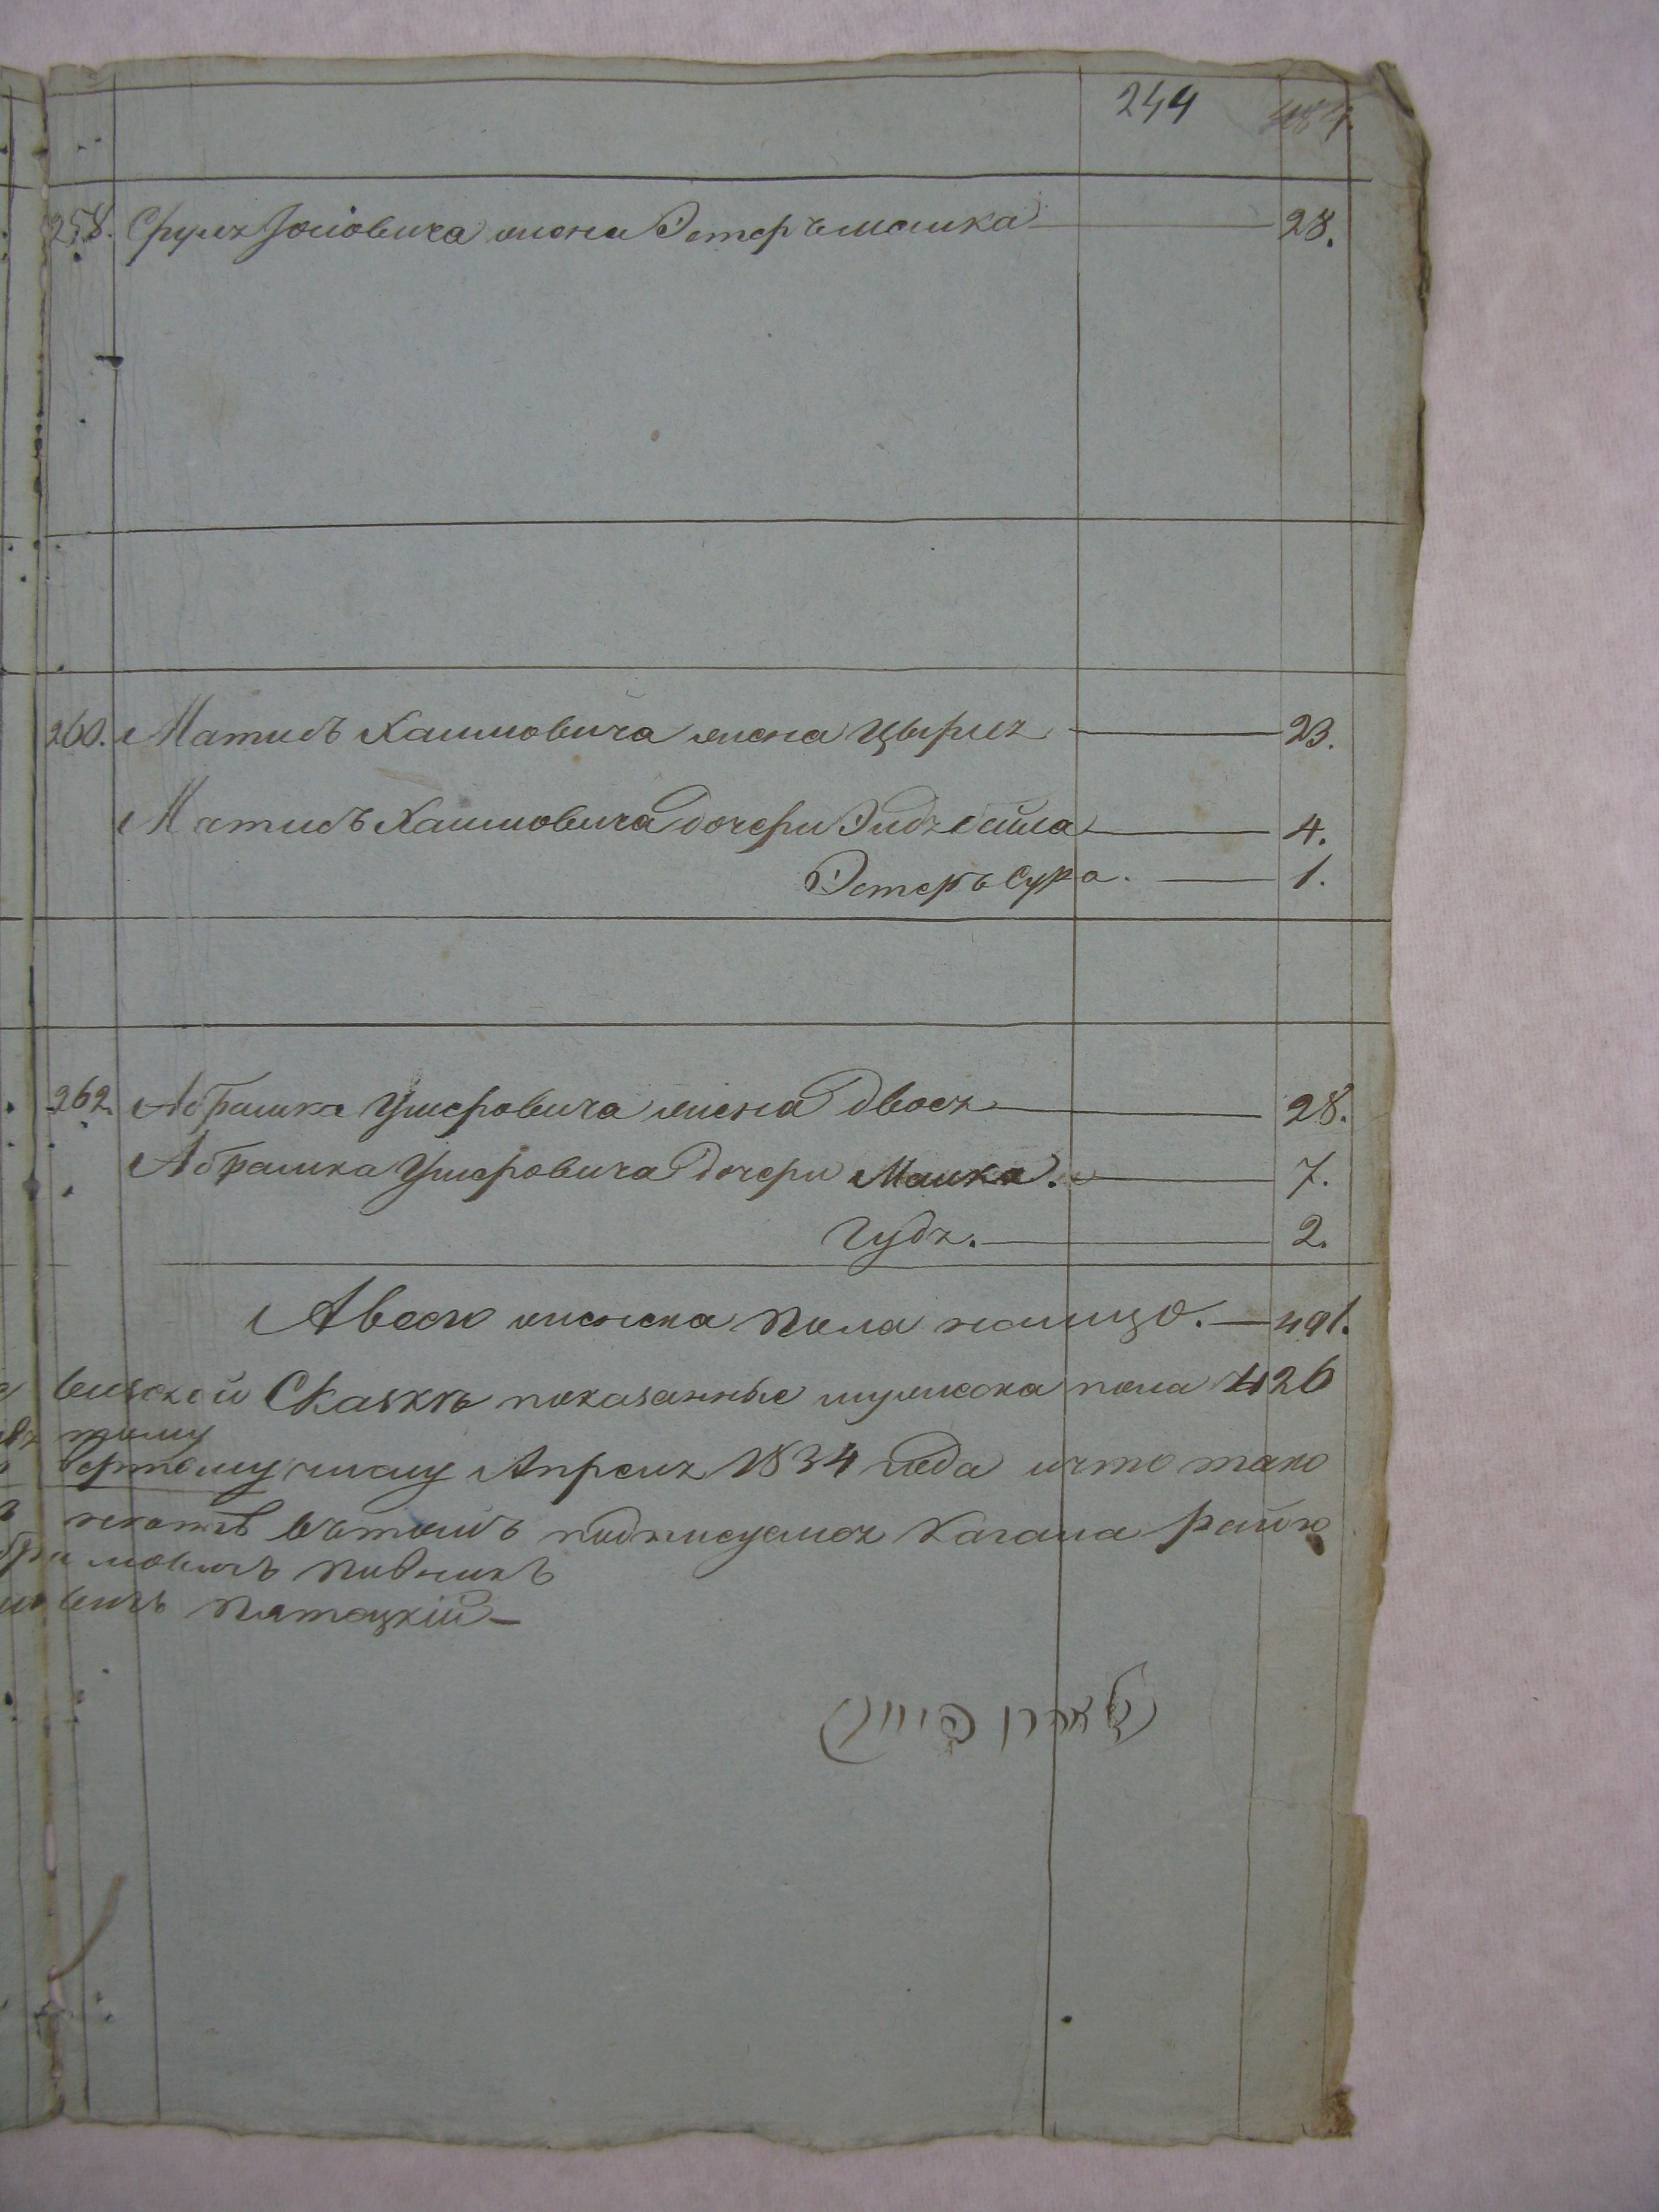 244 484.
258. Сруля Іоиовича жена Эстеръ машка 28.
260. Матисъ Хаимовича жена Цырля 23.
Матисъ Хаимовича дочери Эидлбаша 4.
Эстеръ Сура. 1.
262. Абрамка Ушеровича жена Двося 28.
Абрамка Ушеровича дочери Машка. 7.
Гудя. 2.
А всего женска пола налицо. 491.
визской Сказкѣ показанные мужеска пола 426
тому
вертому числу Апреля 1834 года и что тако
подписуемся Кагала
мовичъ Пивникъ
вичъ Пятоцкій
אהרן פיווניק